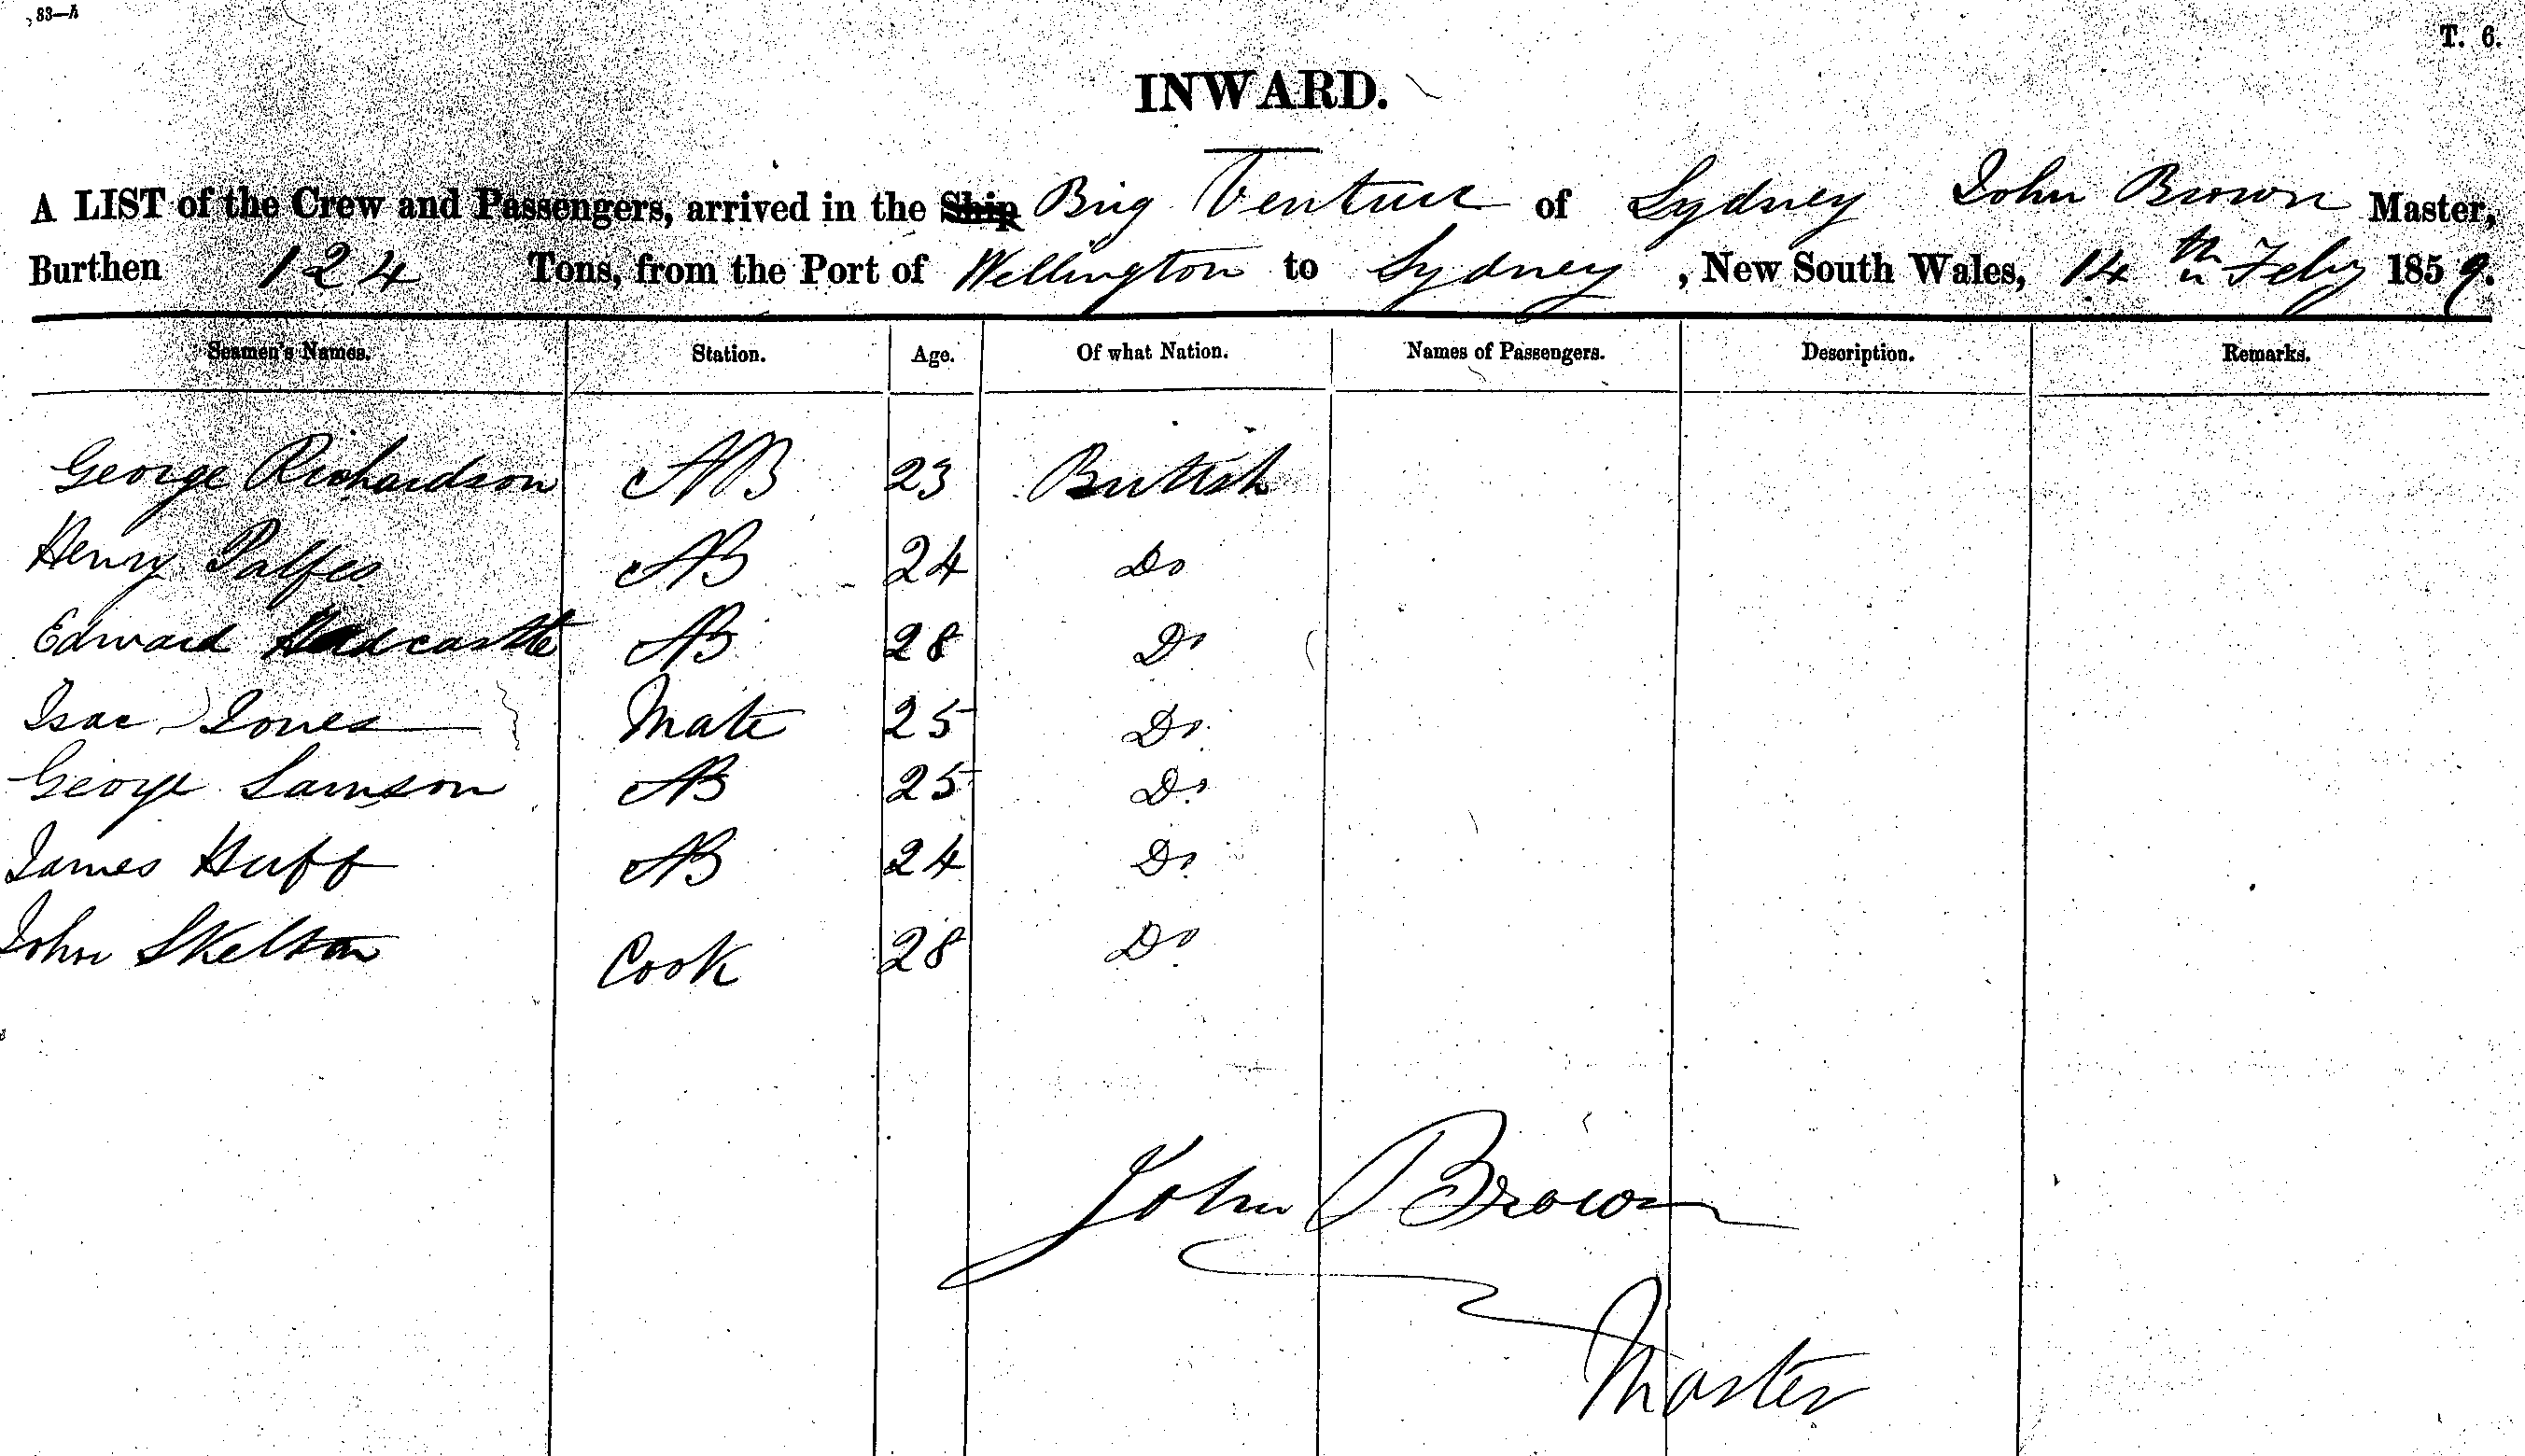 83—h
T. 6.
INWARD.
A LIST of the Crew and Passengers, arrived in the Ship Brig Venture of Sydney John Brown Master,
Burthen 124 Tons, from the Port of Wellington to Sydney, New South Wales, 14th Feby 1859.
Seamen's Names. Station. Age. Of what Nation. Names of Passengers. Description. Remarks.
George Richardson AB 23 British
Henry AB 24 Do
Edward AB 28 Do
Isac Jones Mate 25 Do
George Samson AB 25 Do
James Huff AB 24 Do
John Skelton Cook 28 Do
John Brown
Master